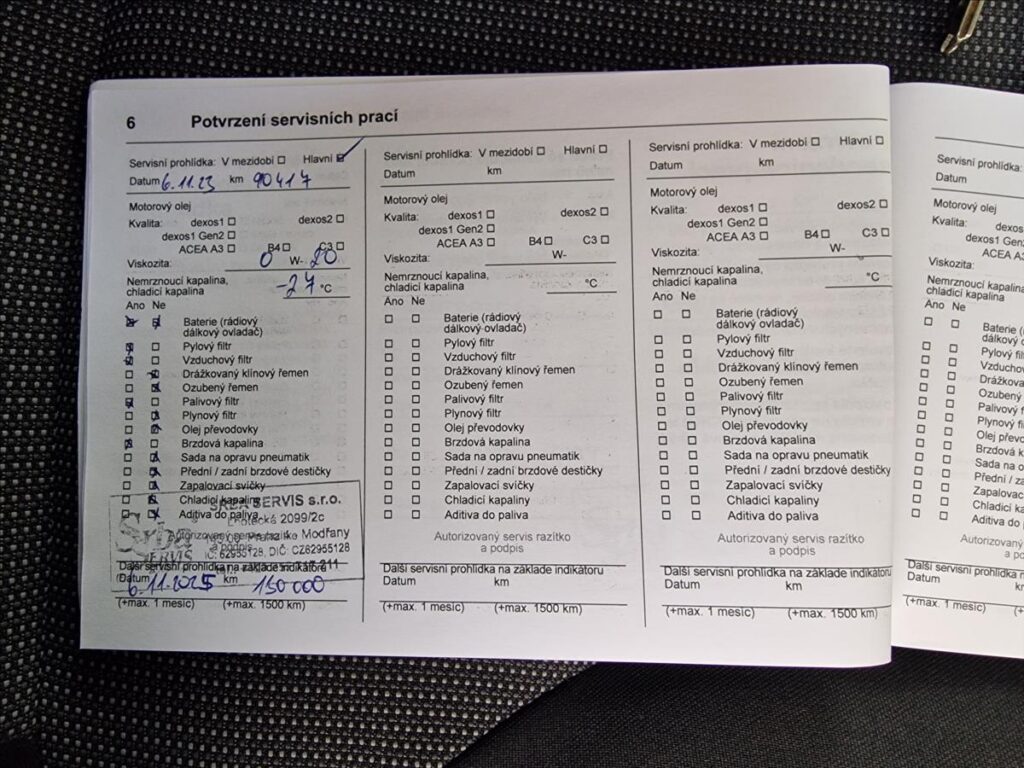 6 Potvrzení servisních prací
Servisní prohlídka: V mezidobí Hlavní
Datum 6.11.23 km 90417
Motorový olej
Kvalita: dexos1 dexos2
dexos1 Gen2
ACEA A3 B4 C3
Viskozita: 0 W- 20
Nemrznoucí kapalina,
chladicí kapalina -27 °C
Ano Ne
Baterie (rádiový
dálkový ovladač)
Pylový filtr
Vzduchový filtr
Drážkovaný klínový řemen
Ozubený řemen
Palivový filtr
Plynový filtr
Olej převodovky
Brzdová kapalina
Sada na opravu pneumatik
Přední / zadní brzdové destičky
Zapalovací svíčky
Chladicí kapaliny
Aditiva do paliva
SRBA SERVIS s.r.o.
2099/2c
Modřany
IČ: 62955128, DIČ: CZ62955128
Autorizovaný servis razítko
a podpis
Další servisní prohlídka na základě indikátoru
Datum 6.11.2025 km 150 000
(+max. 1 měsíc) (+max. 1500 km)
Servisní prohlídka: V mezidobí Hlavní
Datum km
Motorový olej
Kvalita: dexos1 dexos2
dexos1 Gen2
ACEA A3 B4 C3
Viskozita: W-
Nemrznoucí kapalina,
chladicí kapalina °C
Ano Ne
Baterie (rádiový
dálkový ovladač)
Pylový filtr
Vzduchový filtr
Drážkovaný klínový řemen
Ozubený řemen
Palivový filtr
Plynový filtr
Olej převodovky
Brzdová kapalina
Sada na opravu pneumatik
Přední / zadní brzdové destičky
Zapalovací svíčky
Chladicí kapaliny
Aditiva do paliva
Autorizovaný servis razítko
a podpis
Další servisní prohlídka na základě indikátoru
Datum km
(+max. 1 měsíc) (+max. 1500 km)
Servisní prohlídka: V mezidobí Hlavní
Datum km
Motorový olej
Kvalita: dexos1 dexos2
dexos1 Gen2
ACEA A3 B4 C3
Viskozita: W-
Nemrznoucí kapalina,
chladicí kapalina °C
Ano Ne
Baterie (rádiový
dálkový ovladač)
Pylový filtr
Vzduchový filtr
Drážkovaný klínový řemen
Ozubený řemen
Palivový filtr
Plynový filtr
Olej převodovky
Brzdová kapalina
Sada na opravu pneumatik
Přední / zadní brzdové destičky
Zapalovací svíčky
Chladicí kapaliny
Aditiva do paliva
Autorizovaný servis razítko
a podpis
Další servisní prohlídka na základě indikátoru
Datum km
(+max. 1 měsíc) (+max. 1500 km)
Servisní prohlídka:
Datum
Motorový olej
Kvalita: dexos
dexos1 Gen
ACEA A3
Viskozita:
Nemrznoucí kapalina,
chladicí kapalina
Ano Ne
Baterie (rád
dálkový ovl
Pylový filtr
Vzduchový
Drážkovan
Ozubený ř
Palivový f
Plynový fi
Olej přev
Brzdová k
Sada na o
Přední / z
Zapalova
Chladicí k
Aditiva do
Autorizovaný
a
Další servisní prohlídka n
Datum
(+max. 1 měsíc)